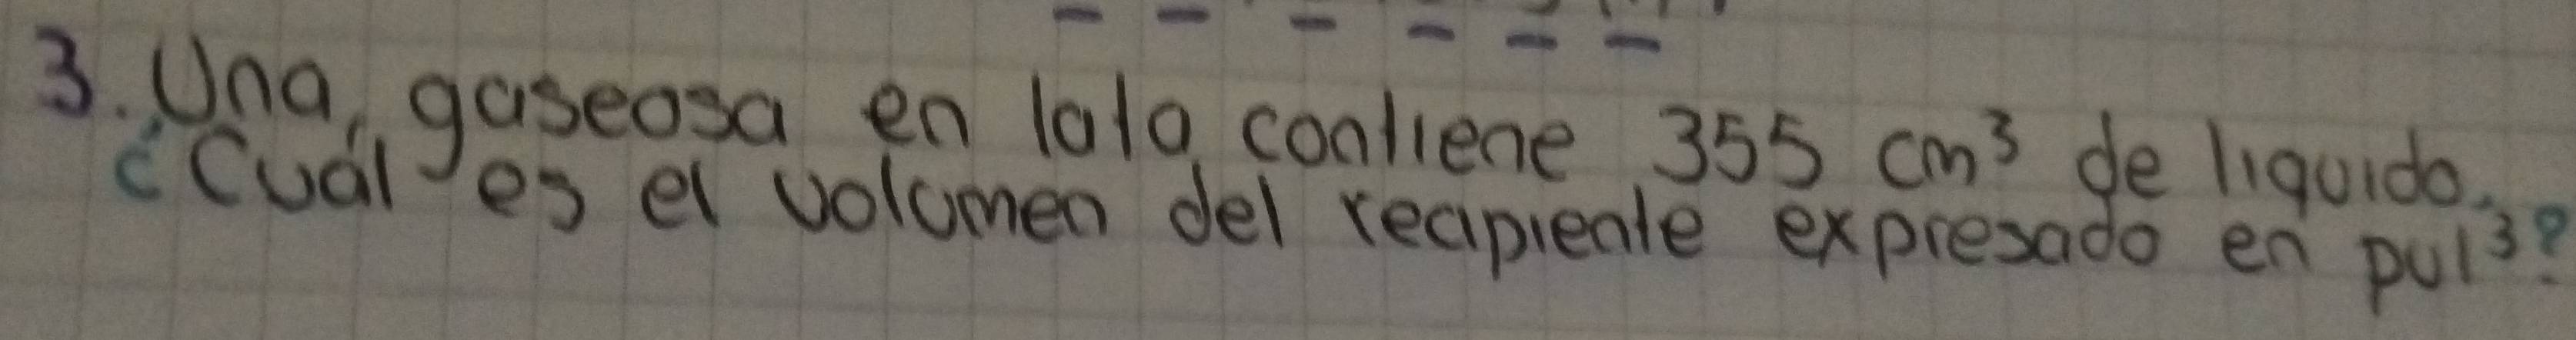 3. Una gaseosa en lata contiene 355 cm³ de liquido.
¿Cuál es el volumen del recipiente expresado en pul³?